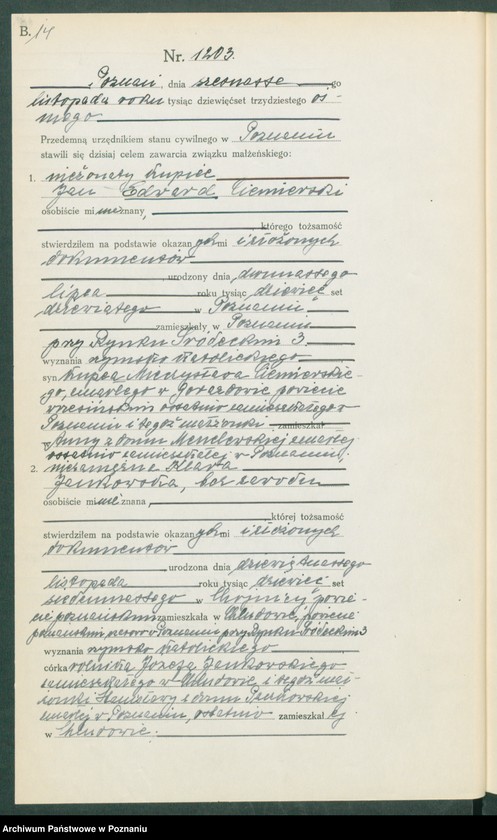 B. 14
Nr. 1203.
Poznań, dnia szesnastego
listopada roku tysiąc dziewięćset trzydziestego ós-
mego
Przedemną urzędnikiem stanu cywilnego w Poznaniu
stawili się dzisiaj celem zawarcia związku małżeńskiego:
1. nieżonaty kupiec
Jan Edward Ciemierski
osobiście mi nieznany,
którego tożsamość
stwierdziłem na podstawie okazanych mi i złożonych
dokumentów
urodzony dnia dwunastego
lipca roku tysiąc dziewięć set
dziewiątego w Poznaniu
zamieszkały w Poznaniu
przy Rynku Śródeckim 3
wyznania rzymsko katolickiego
syn kupca Mieczysława Ciemierskie-
go, zmarłego w powiecie
wrzesińskim ostatnio zamieszkałego w
Poznaniu i tegoż małżonki zamieszkał
Anny z domu zmarłej
ostatnio zamieszkałej w Poznaniu,
2. niezamężna Marta
Jankowska, bez zawodu
osobiście mi nieznana,
której tożsamość
stwierdziłem na podstawie okazanych mi i złożonych
dokumentów
urodzona dnia dziewiętnastego
listopada roku tysiąc dziewięć set
siedemnastego w powie-
cie poznańskim zamieszkała w Chludowie, powiecie
poznańskim, w Poznaniu przy Rynku Śródeckim 3
wyznania rzymsko katolickiego
córka rolnika Józefa Jankowskiego
zamieszkałego w Chludowie i tegoż mał-
żonki Stanisławy z domu
zmarłej w Poznaniu, ostatnio zamieszkałej
w Chludowie.
Archiwum Państwowe w Poznaniu